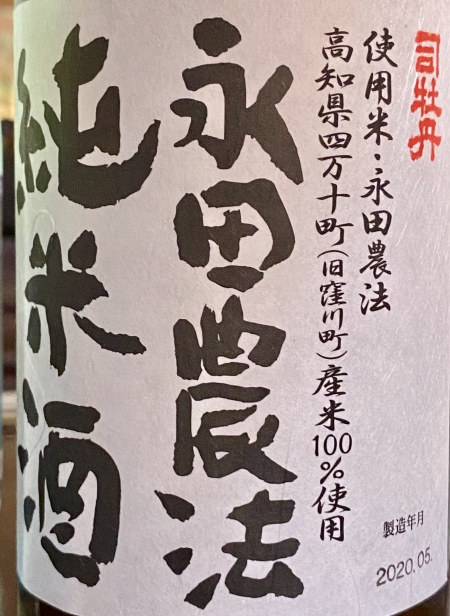 司牡丹
使用米・永田農法
高知県四万十町(旧窪川町)産米100%使用
永田農法
純米酒
製造年月
2020.05.